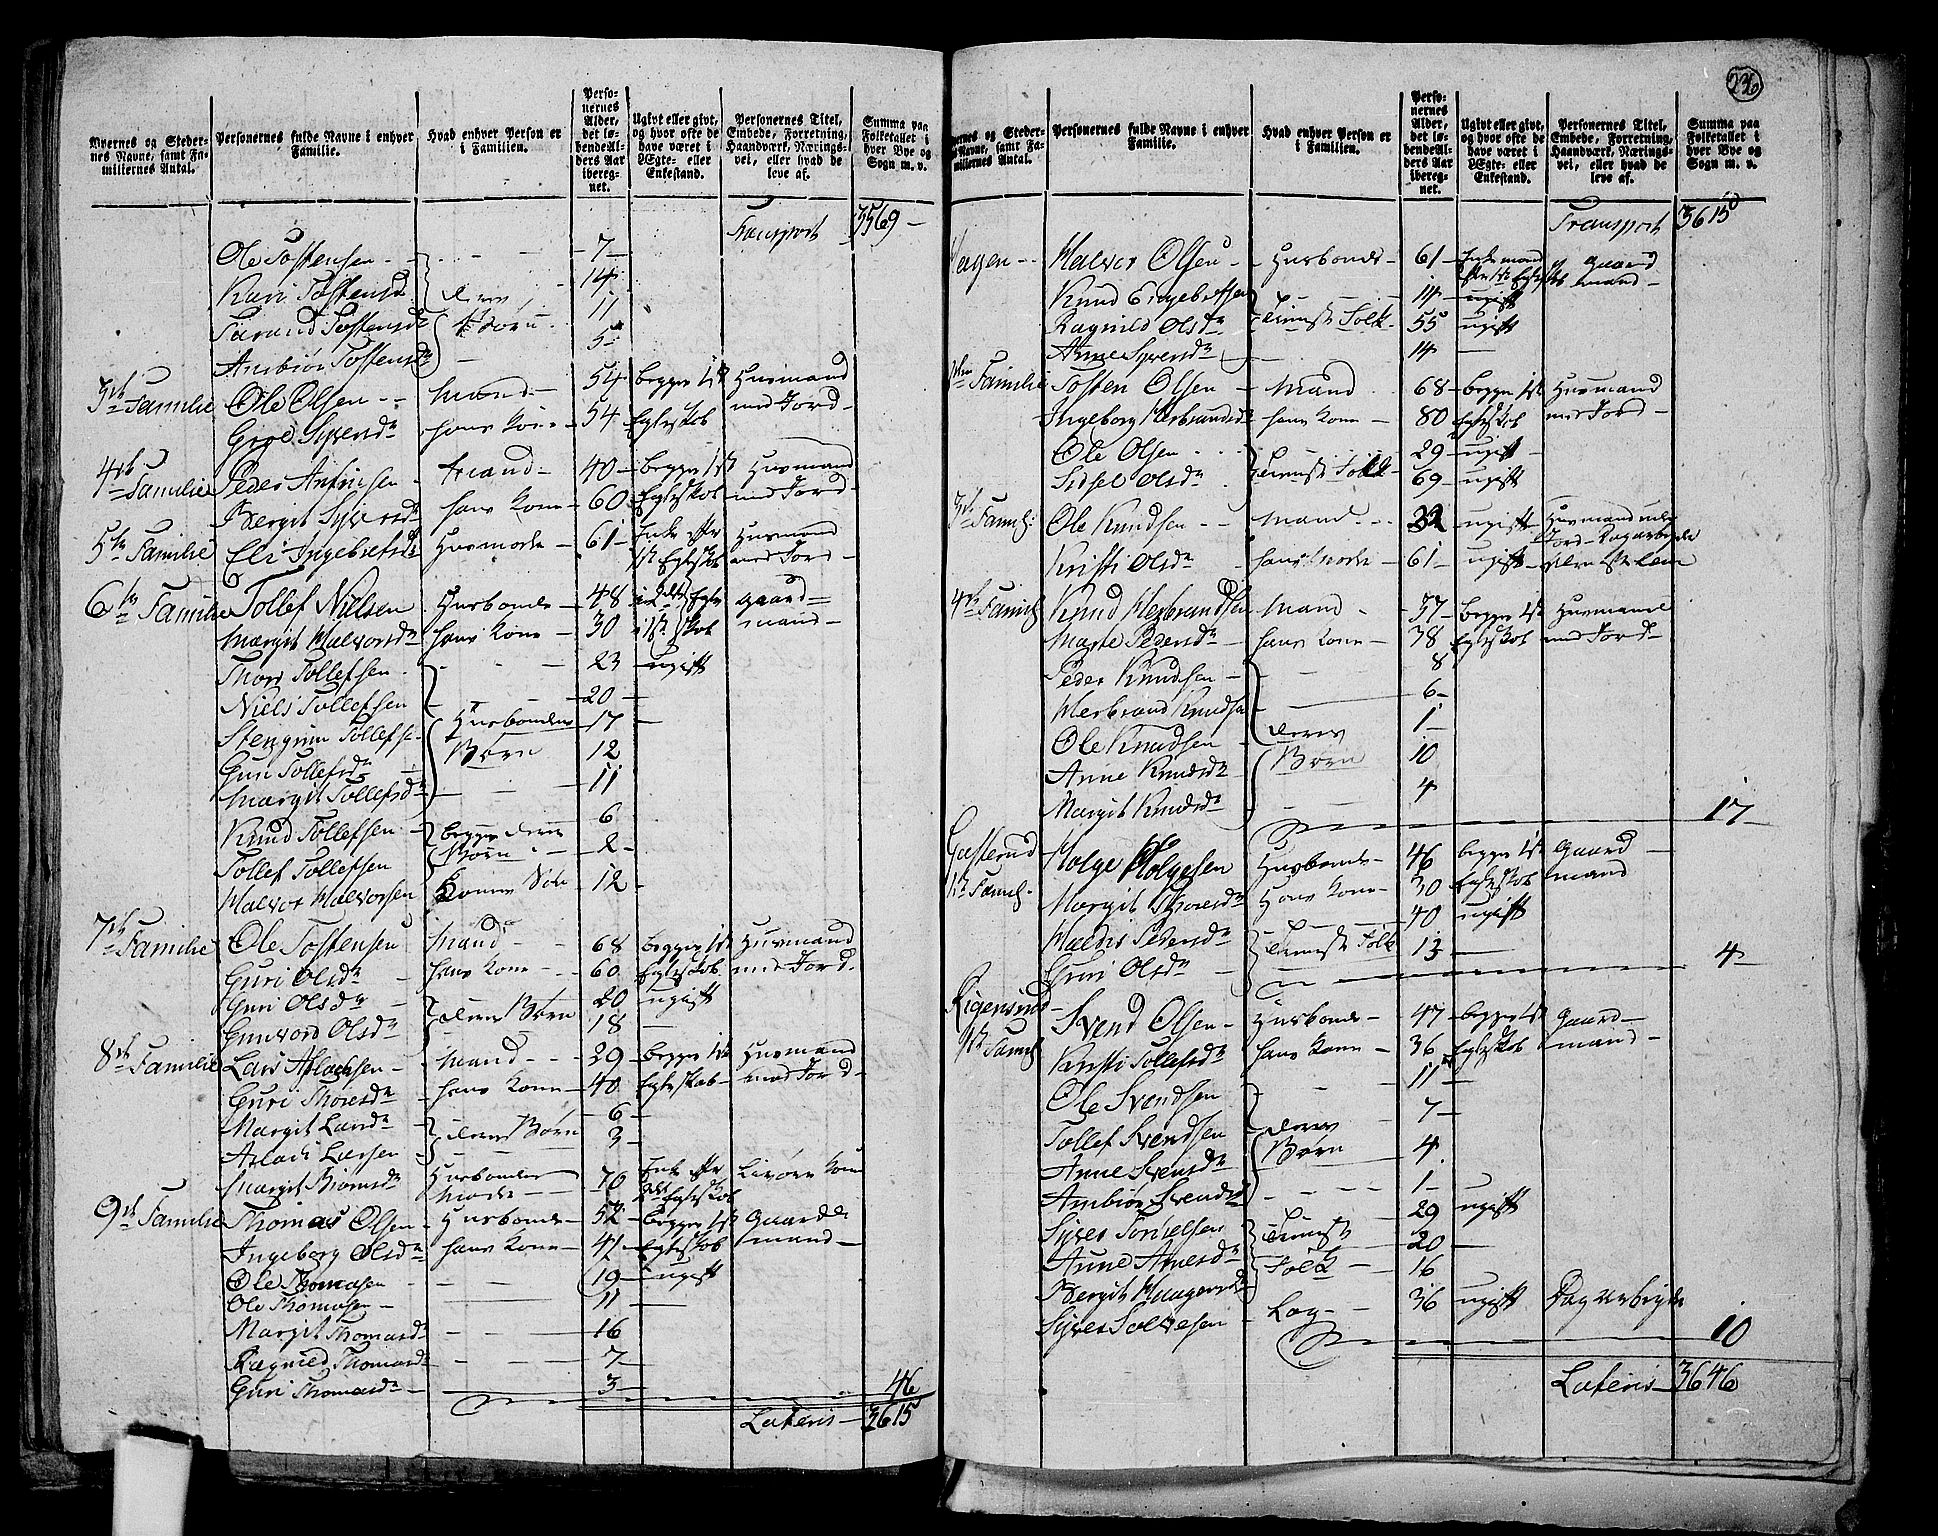 Byernes og Steder-
nes Navne, samt Fa-
miliernes Antal.
Personernes fulde Navne i enhver
Familie.
Hvad enhver Person er
i Familien.
Perso-
nernes
Alder,
det lø-
bende Al-
ders Aar
iberegnet.
Ugivt eller givt,
og hvor ofte de
have været i
Ægte- eller
Enkestand.
Personernes Titel,
Embede, Forretning,
Haandværk, Nærings-
vei, eller hvad de
leve af.
Summa paa
Folketallet i
hver Bye og
Sogn m. v.
Transport 3569 -
Ole Tostensen - 7 -
Kari Tostensd 14
Tarand Tostensdr deres 4 Børn 11
Ambiør Tostensdr 5
3de Familie Ole Olsen Mand 54 begge 1st Huusmand
Groe Syversdr hans Kone 54 Egteskab med Jord
4de Familie Peder Arnesen Mand 40 begge 1st Huusmand
Bergit Syversdr hans Kone 60 Egteskab med Jord
5te Familie Eli Ingebretsdr Huusmoder 61 Enke efter Huusmand
1st Egteskab med Jord
6te Familie Tollef Nielsen Husbonde 48 i 2det Egte gaard
Margit Halvorsdr hans Kone 30 i 1st skab mand
Thore Tollefsen 23 ugift
Niels Tollefsen 20
Stengrim Tollefse Husbondens 17
Guri Tollefsdr Børn 12
Margit Tollefsdr 11
Knud Tollefsen begges deres 6
Tollef Tollefsen Børn 2
Halvor Halvorsen Konens Søn 12
7de Familie Ole Tostensen Mand 68 begge 1st Huusmand
Guri Olsdr hans Kone 60 Egteskab med Jord
Guri Olsdr deres Børn 20 ugift
Gunvord Olsdr 18
8de Familie Lars Aslachsen Mand 29 begge 1st Huusmand
Guri Thoresdr hans Kone 40 Egteskab med Jord
Margit Larsdr deres Børn 6
Aslach Larsen 3
Margit Thomsdr Husbondens 70 Enke efter
Moder 2det Egteskab
9de Familie Thomas Olsen Husbonde 52 begge 1st Gaard
Ingeborg Olsdr hans Kone 41 Egteskab mand
Ole Thomasen 19 ugift
Ole Thomasen 11
Margit Thomasdr 16
Ragnild Thomasdr 7
Guri Thomasdr 3 46
Lateris 3615
Byernes og Steder-
nes Navne, samt Fa-
miliernes Antal.
Personernes fulde Navne i enhver
Familie.
Hvad enhver Person er
i Familien.
Perso-
nernes
Alder,
det lø-
bende Al-
ders Aar
iberegnet.
Ugivt eller givt,
og hvor ofte de
have været i
Ægte- eller
Enkestand.
Personernes Titel,
Embede, Forretning,
Haandværk, Nærings-
vei, eller hvad de
leve af.
Summa paa
Folketallet i
hver Bye og
Sogn m. v.
Transport 3615
Hagen Halvor Olsen Husbonde 61 Enkemand gaard
efter 1ste Egtesk mand
Knud Engebretsen 14 ugift
Ragnild Olsdr Tieniste Folk 55 ugift
Anne Syversdr 14
Familie Tosten Olsen Mand 68 begge 1st Huusmand
Ingeborg Herbrandsdr hans Kone 80 Egteskab med Jord
Ole Olsen 29 ugift
Sidsel Olsdr Tienste Folk 69 ugift
3de Famil: Ole Knudsen Mand 32 ugift Huusmand uden
Jord Dagarbeyder
Kristi Olsdr hans Moder 61 ugift
4de Famil: Knud Herbrandsen Mand 37 begge 1st Huusmand
Marte Pedersdr hans Kone 38 Egteskab med Jord
Peder Knudsen 8
Herbrand Knudse 6
Ole Knudsen deres 1
Anne Knudsdr Børn 10
Margit Knudsdr 4
17
Gasterud Holge Holgesen Husbonde 46 begge 1st Gaard
1ste Famil. Margit Thoresdr Hans Kone 30 Egteskab mand
Haldis Pedersdr Tieniste Folk 40 ugift
Guri Olsdr 13 4
Svend Olsen Husbonde 47 begge 1st Gaard
1ste Famil Kristi Tollefsdr hans Kone 36 Egteskab mand
Ole Svendsen 11
Tollef Svendsen deres 7
Anne Svensdr Børn 4
Ambiør Svensdr 1
Syver Tornelsen Tieniste 29 ugift
Anne Arnesdr Folk 20
Bergit Haagensdr 16
Syver Solvesen Log 36 ugift Dag arbeyder
10
Lateris 3646